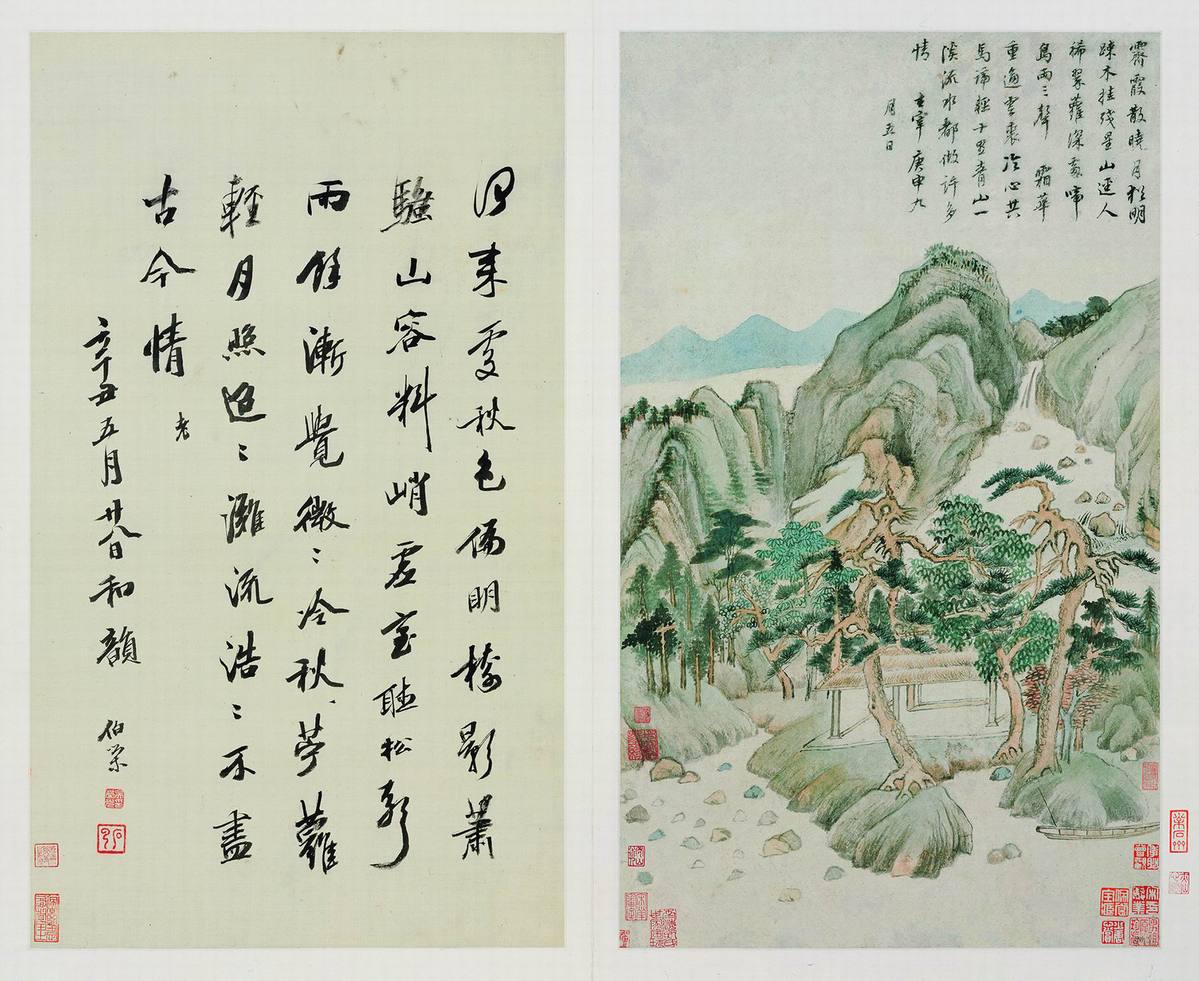 何來處秋色偏明樓影蕭
騷山容料峭虛室聽松聲
雨餘漸覺微〻冷秋苧蘿
輕月照迢〻灘流浩〻不盡
古今情 老
辛丑五月廿八日和韻 伯榮
霽霞散曉月猶明
疎木挂殘星山逕人
稀翠蘿深處啼
鳥兩三聲 霜華
重逼雲裘冷心共
馬蹄輕十里青山一
溪流水都做許多
情 玄宰 庚申九
月五日